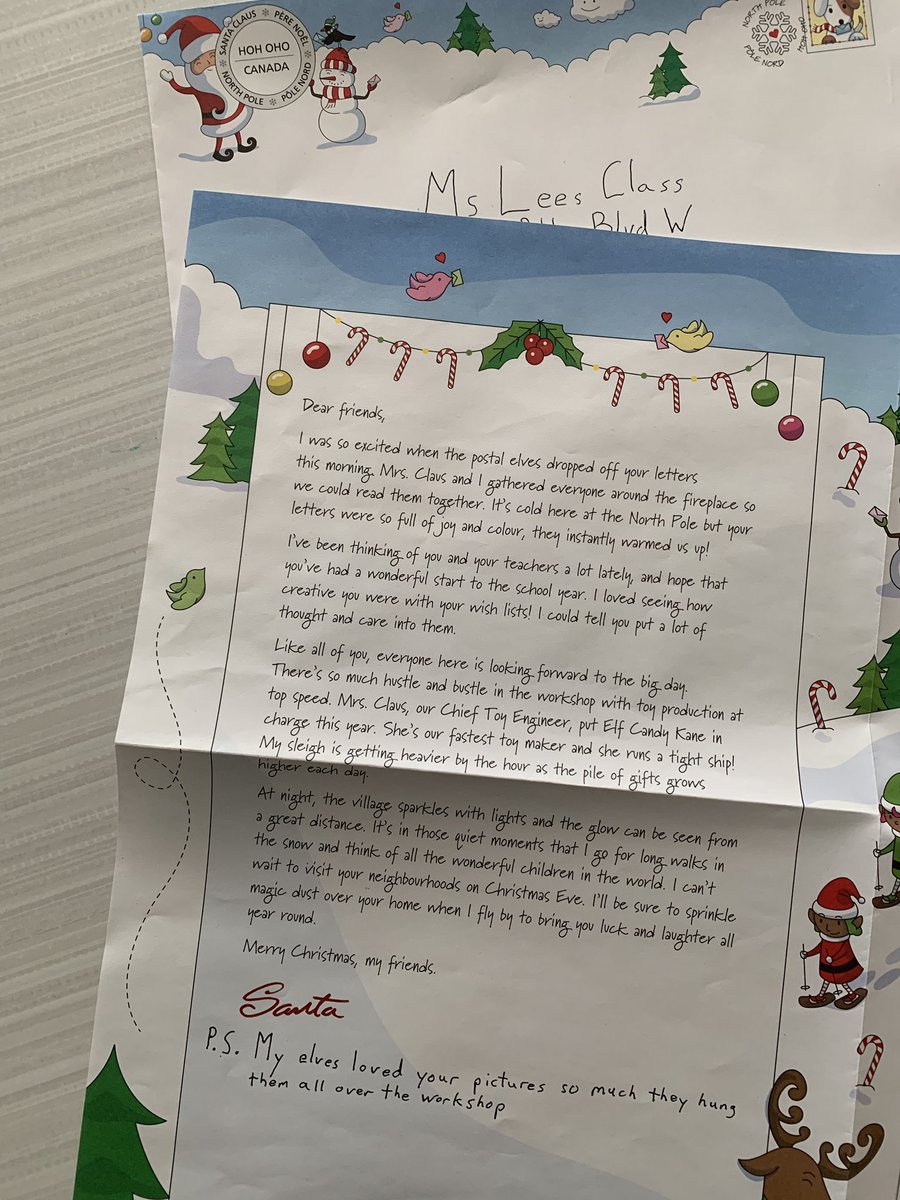 SANTA CLAUS * PÈRE NOËL
HOH OHO
CANADA
NORTH POLE * PÔLE NORD
NORTH POLE
HOH OHO
PÔLE NORD
Ms Lees Class
Blvd W
Dear friends,
I was so excited when the postal elves dropped off your letters
this morning. Mrs. Claus and I gathered everyone around the fireplace so
we could read them together. It's cold here at the North Pole but your
letters were so full of joy and colour, they instantly warmed us up!
I've been thinking of you and your teachers a lot lately, and hope that
you've had a wonderful start to the school year. I loved seeing how
creative you were with your wish lists! I could tell you put a lot of
thought and care into them.
Like all of you, everyone here is looking forward to the big day.
There's so much hustle and bustle in the workshop with toy production at
top speed. Mrs. Claus, our Chief Toy Engineer, put Elf Candy Kane in
charge this year. She's our fastest toy maker and she runs a tight ship!
My sleigh is getting heavier by the hour as the pile of gifts grows
higher each day.
At night, the village sparkles with lights and the glow can be seen from
a great distance. It's in those quiet moments that I go for long walks in
the snow and think of all the wonderful children in the world. I can't
wait to visit your neighbourhoods on Christmas Eve. I'll be sure to sprinkle
magic dust over your home when I fly by to bring you luck and laughter all
year round.
Merry Christmas, my friends.
Santa
P.S. My elves loved your pictures so much they hung
them all over the workshop